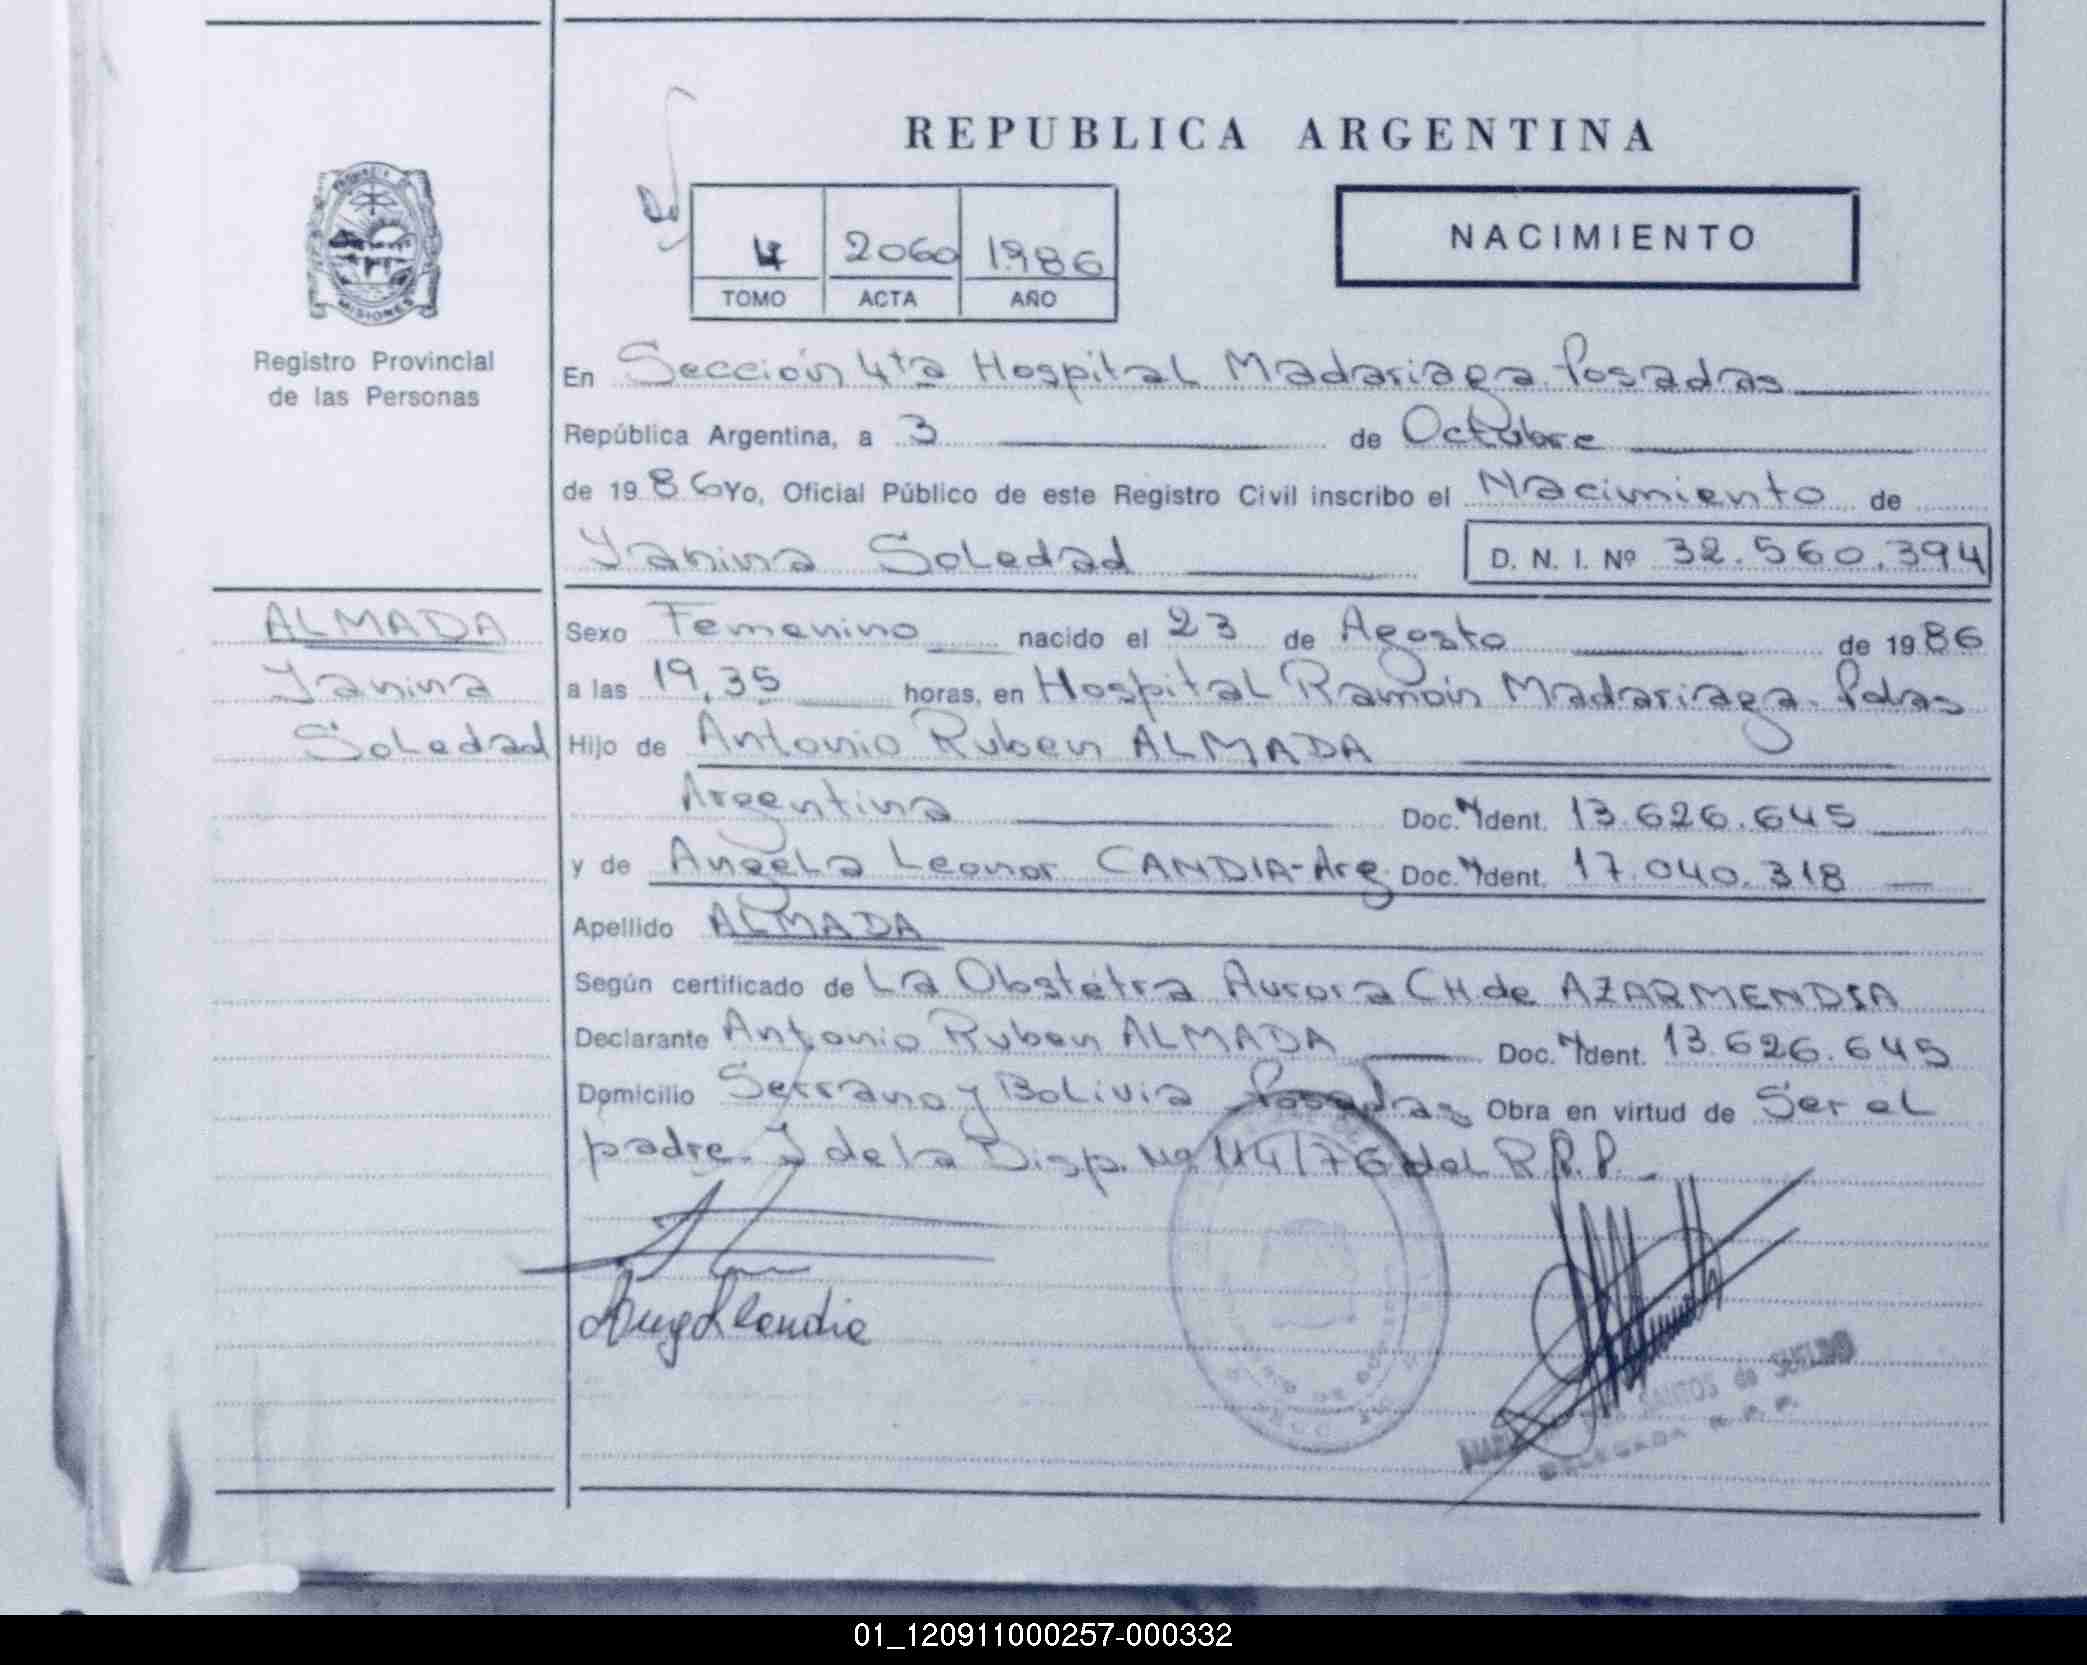 REPUBLICA ARGENTINA
4 2060 1986
TOMO ACTA AÑO
NACIMIENTO
MISIONES
Registro Provincial
de las Personas
En Sección 4ta Hospital Madariaga Posadas
República Argentina, a 3 de Octubre
de 1986 Yo, Oficial Público de este Registro Civil inscribo el Nacimiento de
Yanina Soledad D. N. I. Nº 32.560.394
ALMADA
Yanina
Soledad
Sexo Femenino nacido el 23 de Agosto de 1986
a las 19,35 horas, en Hospital Ramón Madariaga. Pdas
Hijo de Antonio Ruben ALMADA
Argentina Doc. Ident. 13.626.645
y de Angela Leonor CANDIA-Arg. Doc. Ident. 17.040.318
Apellido ALMADA
Según certificado de La Obstétra Aurora CH de AZARMENDIA
Declarante Antonio Ruben ALMADA Doc. Ident. 13.626.645
Domicilio Serrano y Bolivia Posadas Obra en virtud de Ser el
padre. Y de la Disp. Nº 114/76 del R.P.P.
SANTOS de SUELDO
DELEGADA R. P. P.
01_120911000257-000332